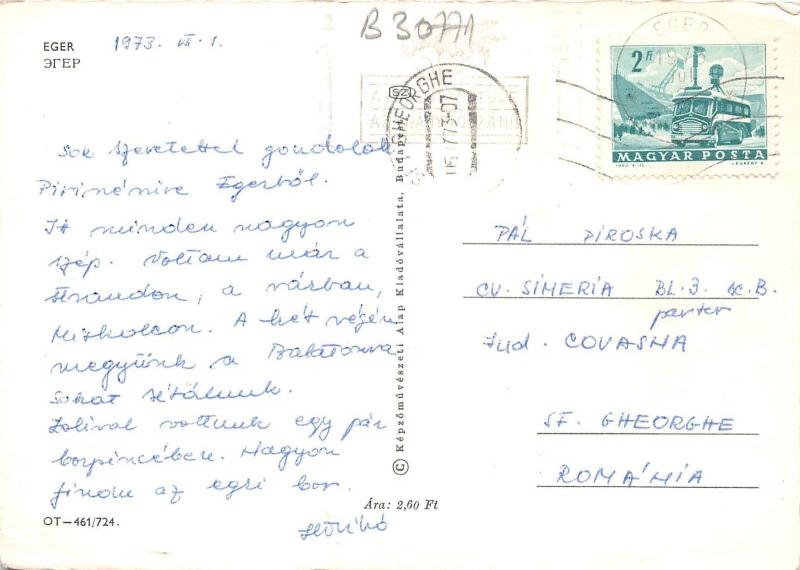 B 30771
EGER 1973. VII. 1.
ЭГЕР
Sok szeretettel gondolok
Piri nénire Egerből.
Itt minden nagyon
szép. Voltam már a
strandon, a várban,
Miskolcon. A hét végén
megyünk a Balatonra
Sokat sétálunk.
Zolival voltunk egy pár
borpincében. Nagyon
finom az egri bor.
Ára: 2,60 Ft
OT—461/724.
© Képzőművészeti Alap Kiadóvállalata, Budapest
SZ
GHEORGHE
EGER
2 Ft
MAGYAR POSTA
PÁL PIROSKA
CV. SIMERIA BL. 3. sc. B.
parter
Jud. COVASNA
SF. GHEORGHE
ROMÁNIA